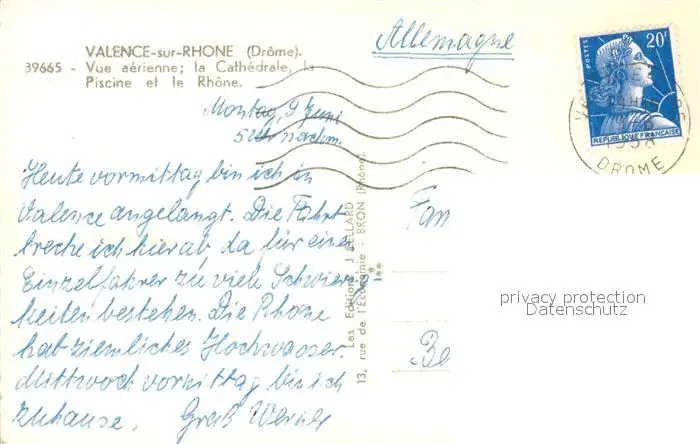 VALENCE-sur-RHONE (Drôme).
39665 - Vue aérienne; la Cathédrale, la
Piscine et le Rhône.
Allemagne
20F
POSTES
REPUBLIQUE FRANÇAISE
DROME
Montag, 9 Juni
5 Uhr nachm.
Heute vormittag bin ich in
Valence angelangt. Die Fahrt
breche ich hier ab, da für einen
Einzelfahrer zu viele Schwierig
keiten bestehen. Die Rhone
hat ziemliches Hochwasser.
Mittwoch vormittag bin ich
zuhause. Gruß Werner
Les Editions J. CELLARD
13, rue de l'Economie - BRON (Rhône)
Fam
Be
privacy protection
Datenschutz